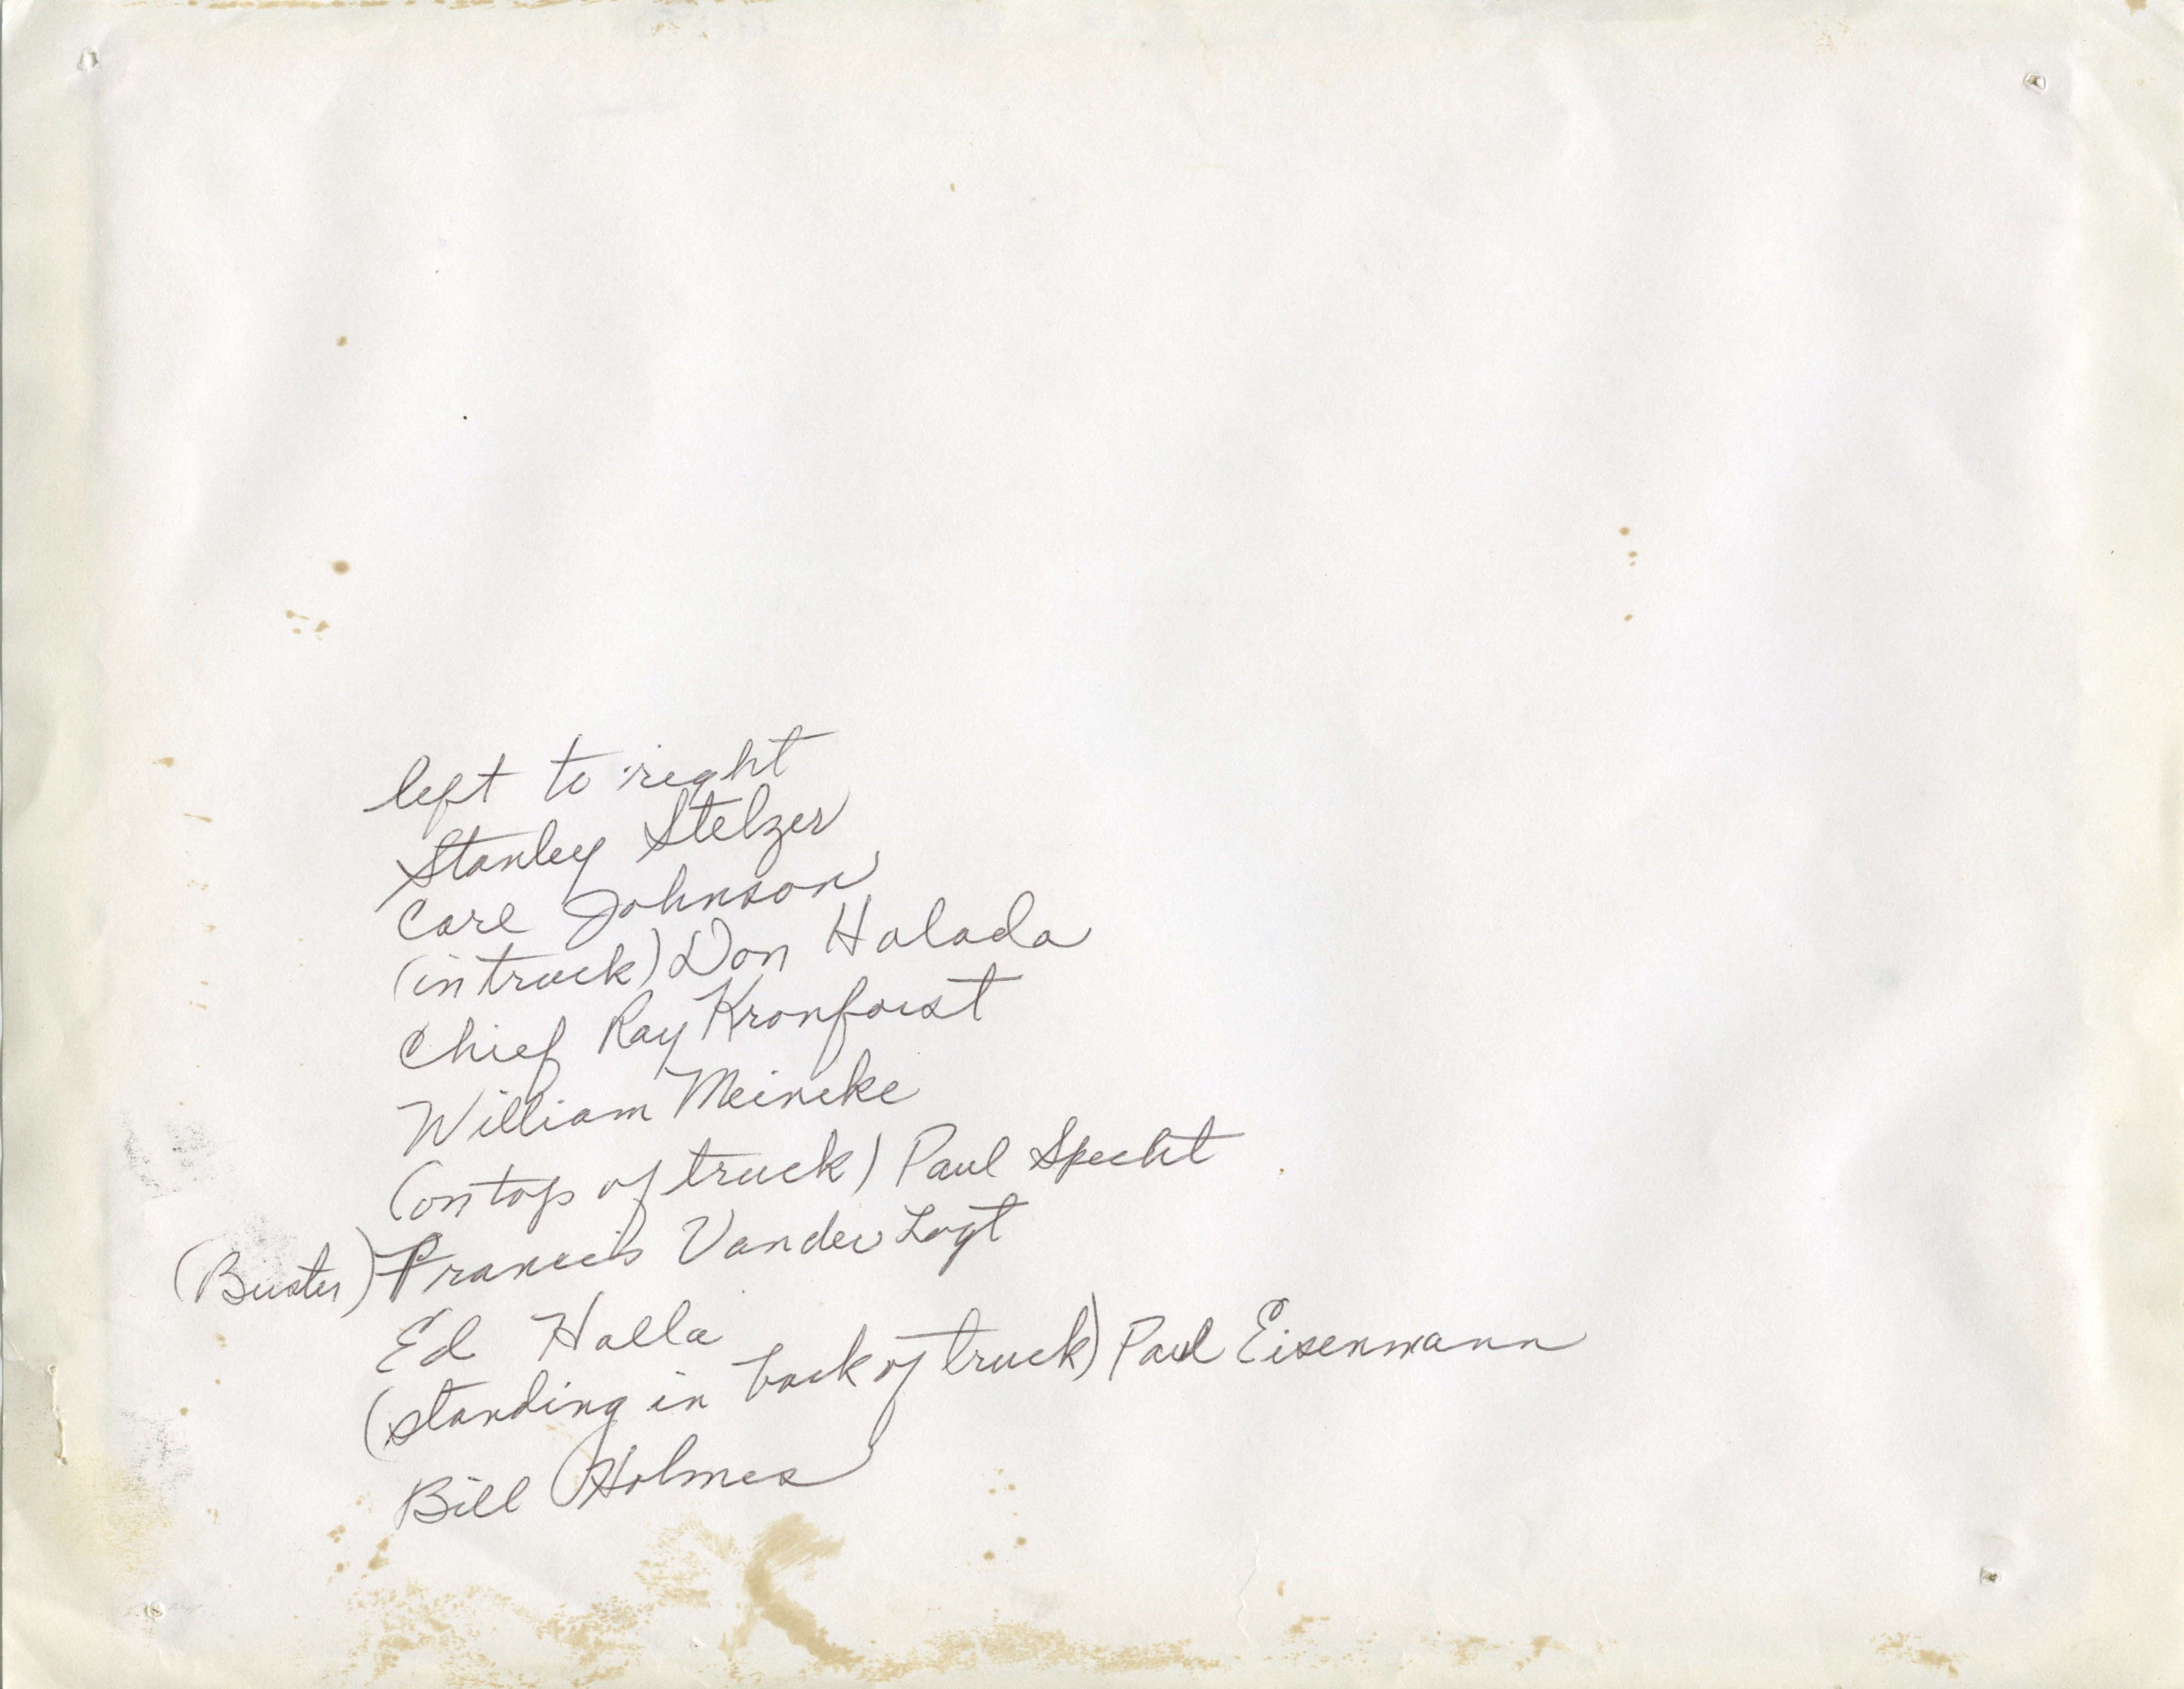 left to right
Stanley Stelzer
Carl Johnson
(in truck) Don Halada
Chief Ray Kronforst
William Meineke
(on top of truck) Paul Specht
(Buster) Francis Vander Logt
Ed Halla
(standing in back of truck) Paul Eisenmann
Bill Holmes